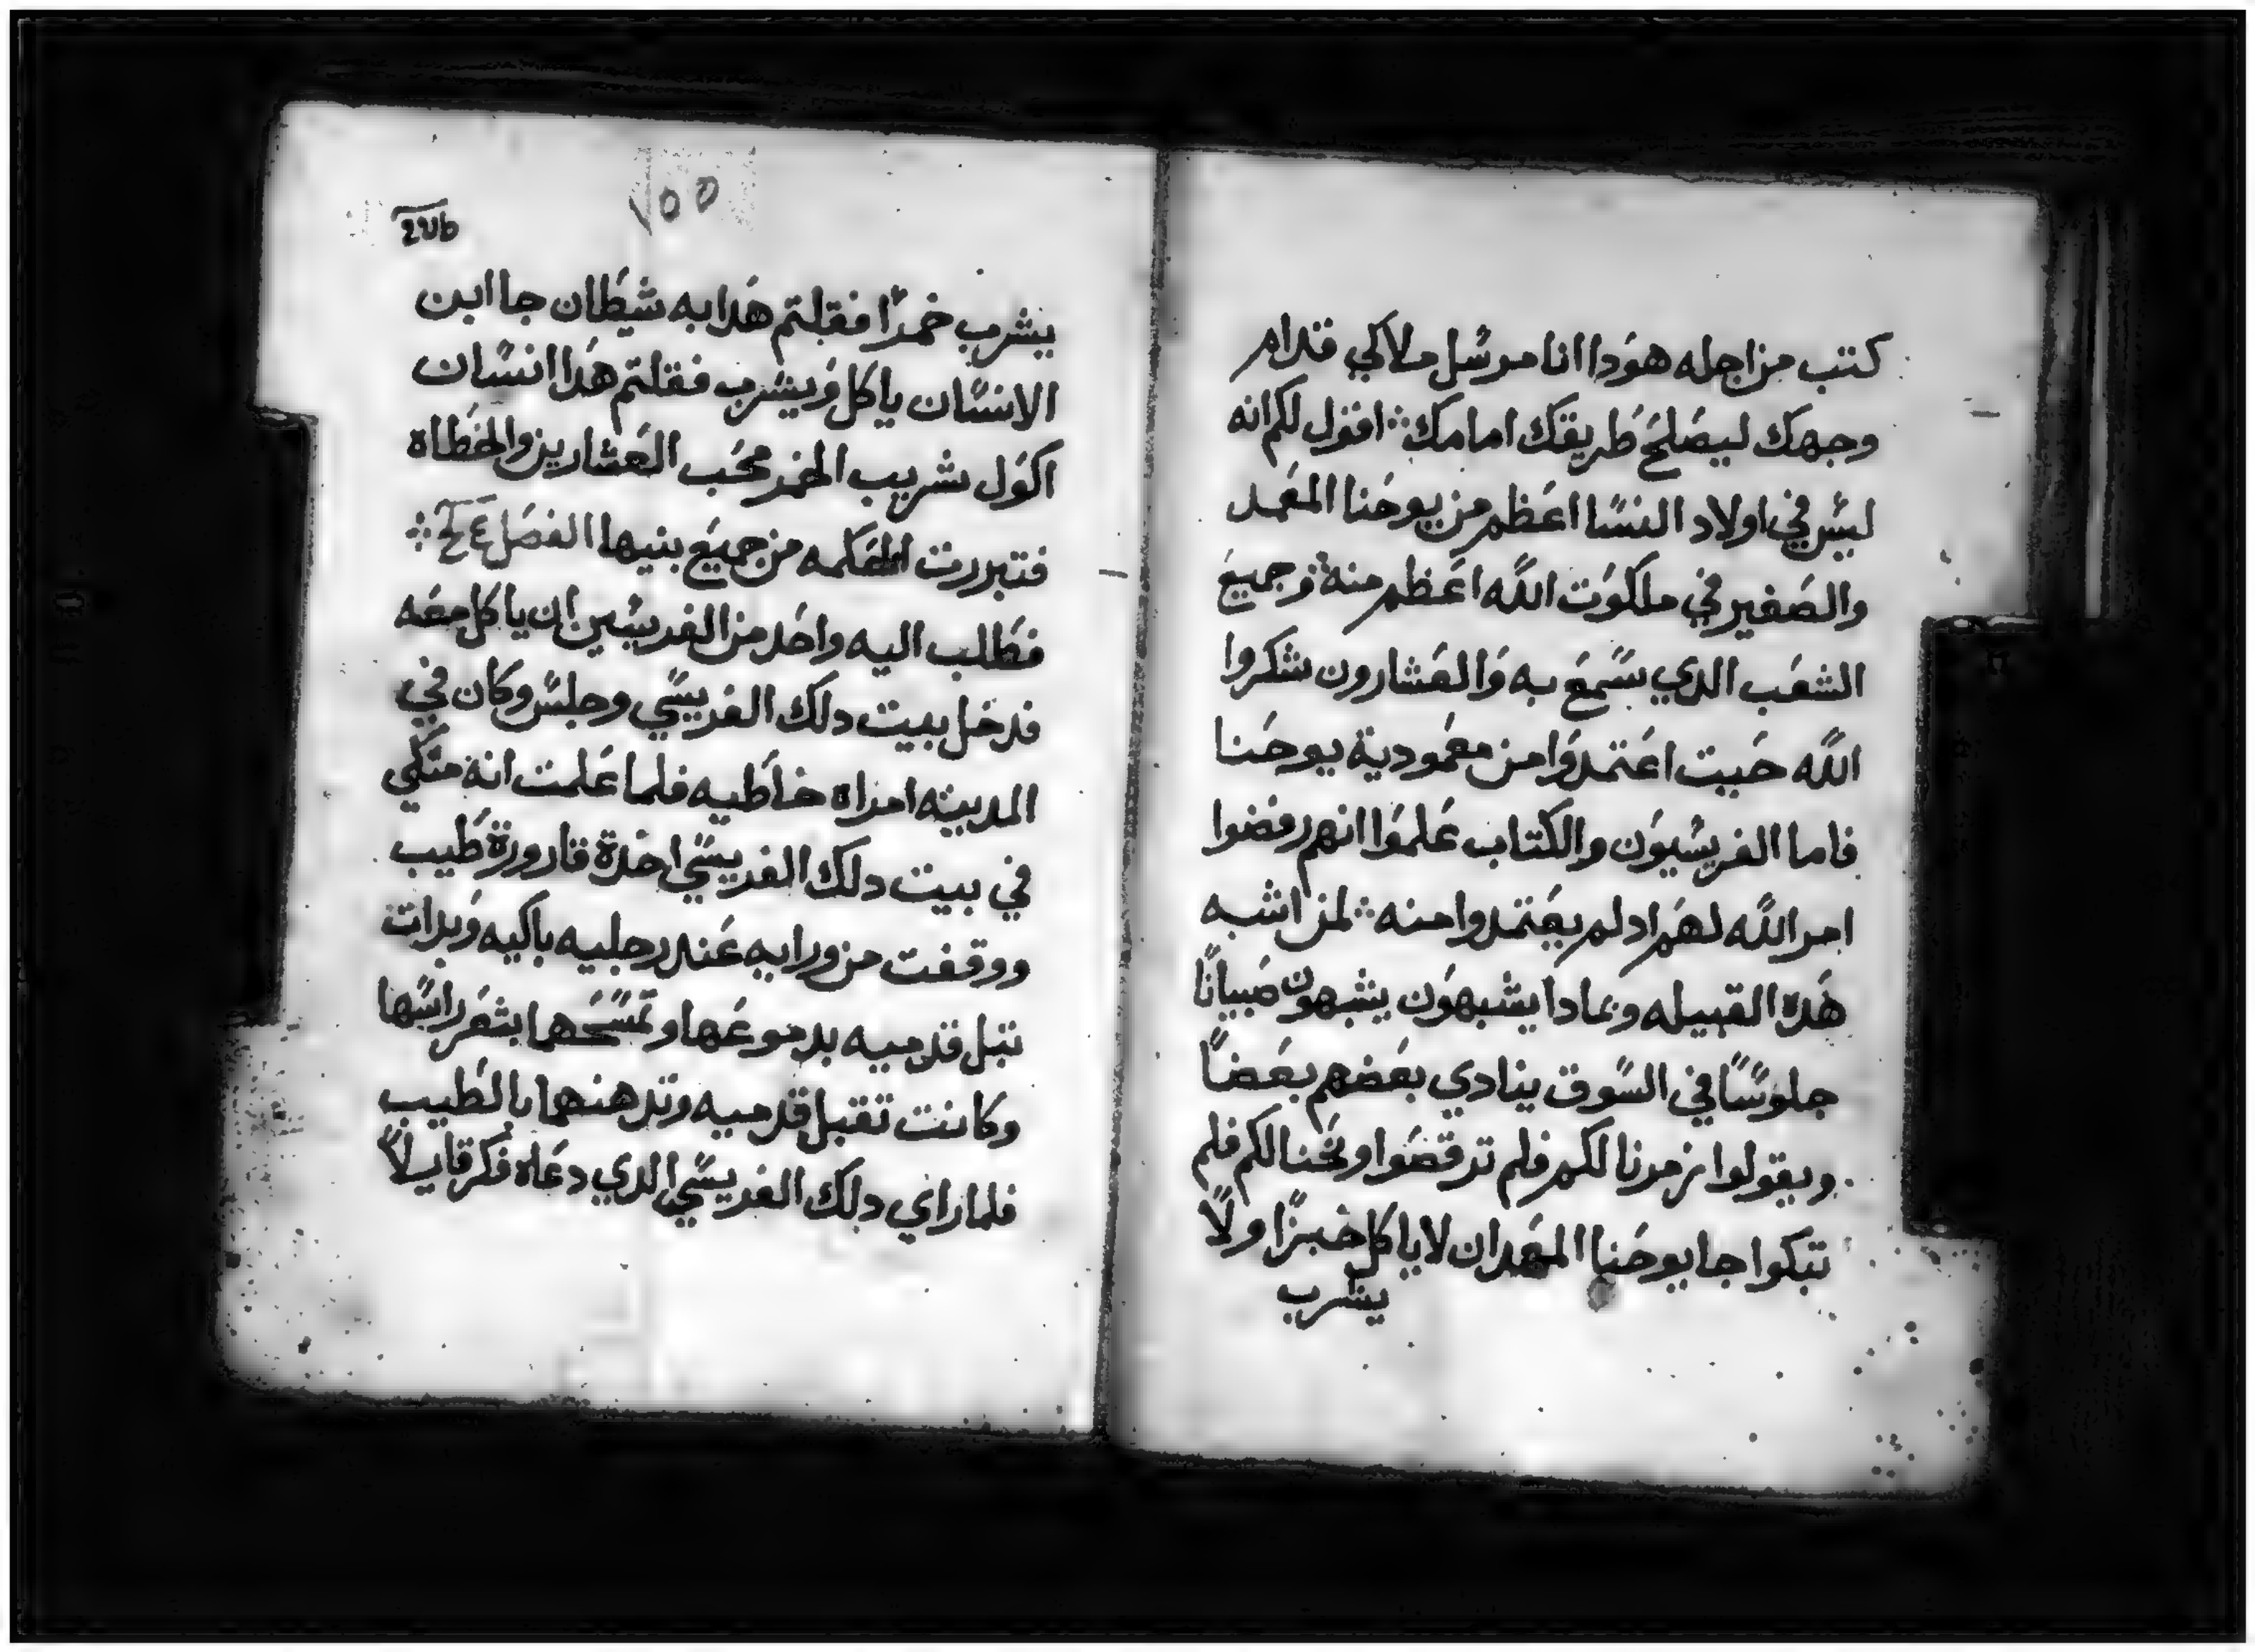 كتب من اجله هودا انا مرسل ملاكي قدام
وجهك ليصلح طريقك امامك ⁘ اقول لكم انه
ليس في اولاد النسا اعظم من يوحنا المعمد
والصغير في ملكوت الله اعظم منه ⁘ وجميع
الشعب الدي سمع به والعشارون شكروا
الله حيت اعتمدوا من معمودية يوحنا
فاما الفريسيون والكتاب علموا انهم رفضوا
امر الله لهم ادلم يعتمدوا منه ⁘ لمن اشبه
هده القبيله وبمادا يشبهون يشبهون صبيانًا
جلوسًا في السوق ينادي بعضهم بعضًا
ويقولوا زمرنا لكم فلم ترقصوا ونحنا لكم فلم
تبكوا جا يوحنا المعمدان لا ياكل خبزًا ولا
يشرب
١٥٥
يشرب خمرًا فقلتم هدا به شيطان جا ابن
الانسان ياكل ويشرب فقلتم هدا انسان
اكول شريب الخمر محب العشارين والخطاه
فتبررت الحكمه من جميع بنيها الفصل
فطلب اليه واحد من الفريسين ان ياكل معه
فدخل بيت دلك الفريسي وجلس وكان في
المدينه امراه خاطيه فلما علمت انه متكي
في بيت دلك الفريسي اخدة قارورة طيب
ووقفت من ورايه عند رجليه باكيه وبدات
تبل قدميه بدموعها وتمسحهما بشعر راسها
وكانت تقبل قدميه وتدهنهما بالطيب
فلما راي دلك الفريسي الدي دعاه فكر قايلاً